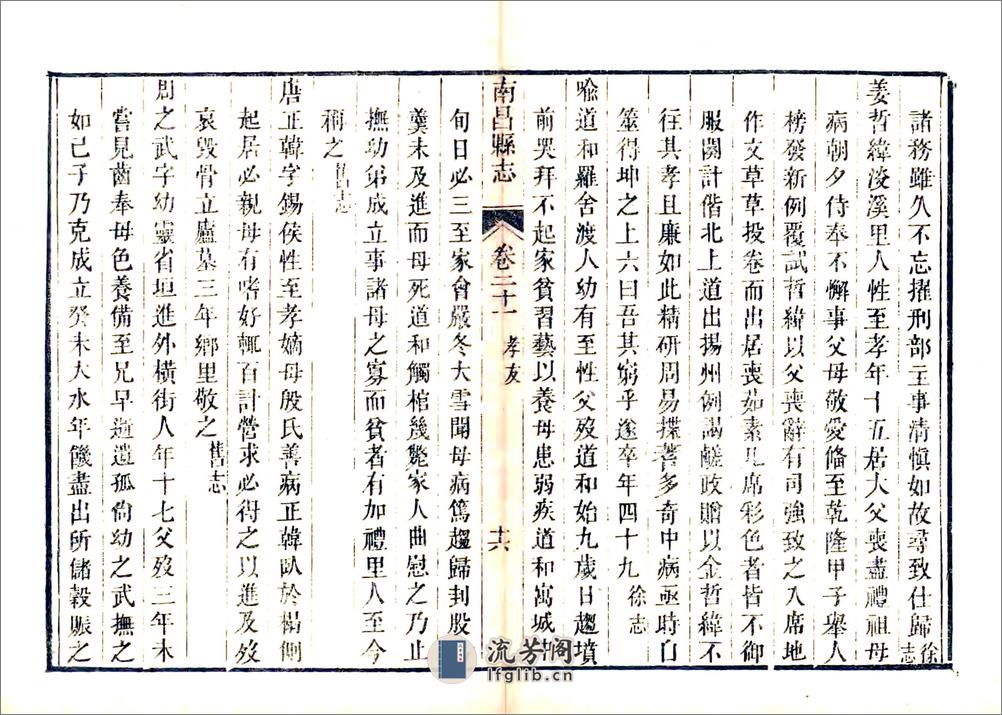 諸務雖久不忘擢刑部主事清愼如故尋致仕歸徐志
姜哲緯淩溪里人性至孝年十五居大父喪盡禮祖母
病朝夕侍奉不懈事父母敬愛備至乾隆甲子舉人
榜發新例覆試哲緯以父喪辭有司強致之入席地
作文草草投卷而出居喪茹素凡席彩色者皆不御
服闋計偕北上道出揚州例謁鹺政贈以金哲緯不
往其孝且廉如此精研周易揲蓍多奇中病亟時自
筮得坤之上六曰吾其窮乎遂卒年四十九徐志
喩道和羅舍渡人幼有至性父歿道和始九歲日趨墳
前哭拜不起家貧習藝以養母患弱疾道和寓城中
南昌縣志
卷二十一
孝友
六
旬日必三至家會嚴冬大雪聞母病篤趨歸刲股
羹未及進而母死道和觸棺幾斃家人曲慰之乃止
撫幼弟成立事諸母之寡而貧者有加禮里人至今
稱之舊志
唐正韓字錫侯性至孝嫡母殷氏善病正韓臥於榻側
起居必親母有嗜好輒百計營求必得之以進及歿
哀毀骨立廬墓三年鄉里敬之舊志
周之武字幼靈省垣進外橫街人年十七父歿三年未
嘗見齒奉母色養備至兄早逝遺孤尙幼之武撫之
如己子乃克成立癸未大水年饑盡出所儲穀賑之
流芳阁
lfglib.cn